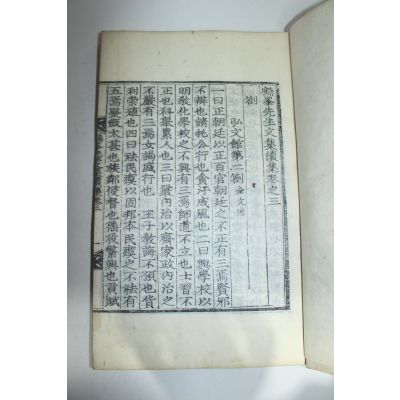 鶴峯先生文集續集卷之三
劄
弘文館第二劄
一曰正朝廷以正百官朝廷之不正有三焉賢邪
不辨也請托公行也貪汙成風也二曰興學校以
明敎化學校之不興有三焉師道不立也士習不
正也科擧累人也三曰嚴內治以齊家政內治之
不嚴有三焉女謁盛行也 王子敎誨不預也貨
利崇殖也四曰祛民瘼以固邦本民瘼之不祛有
五焉聚斂太甚也族鄰侵督也徭役繁興也貢賦